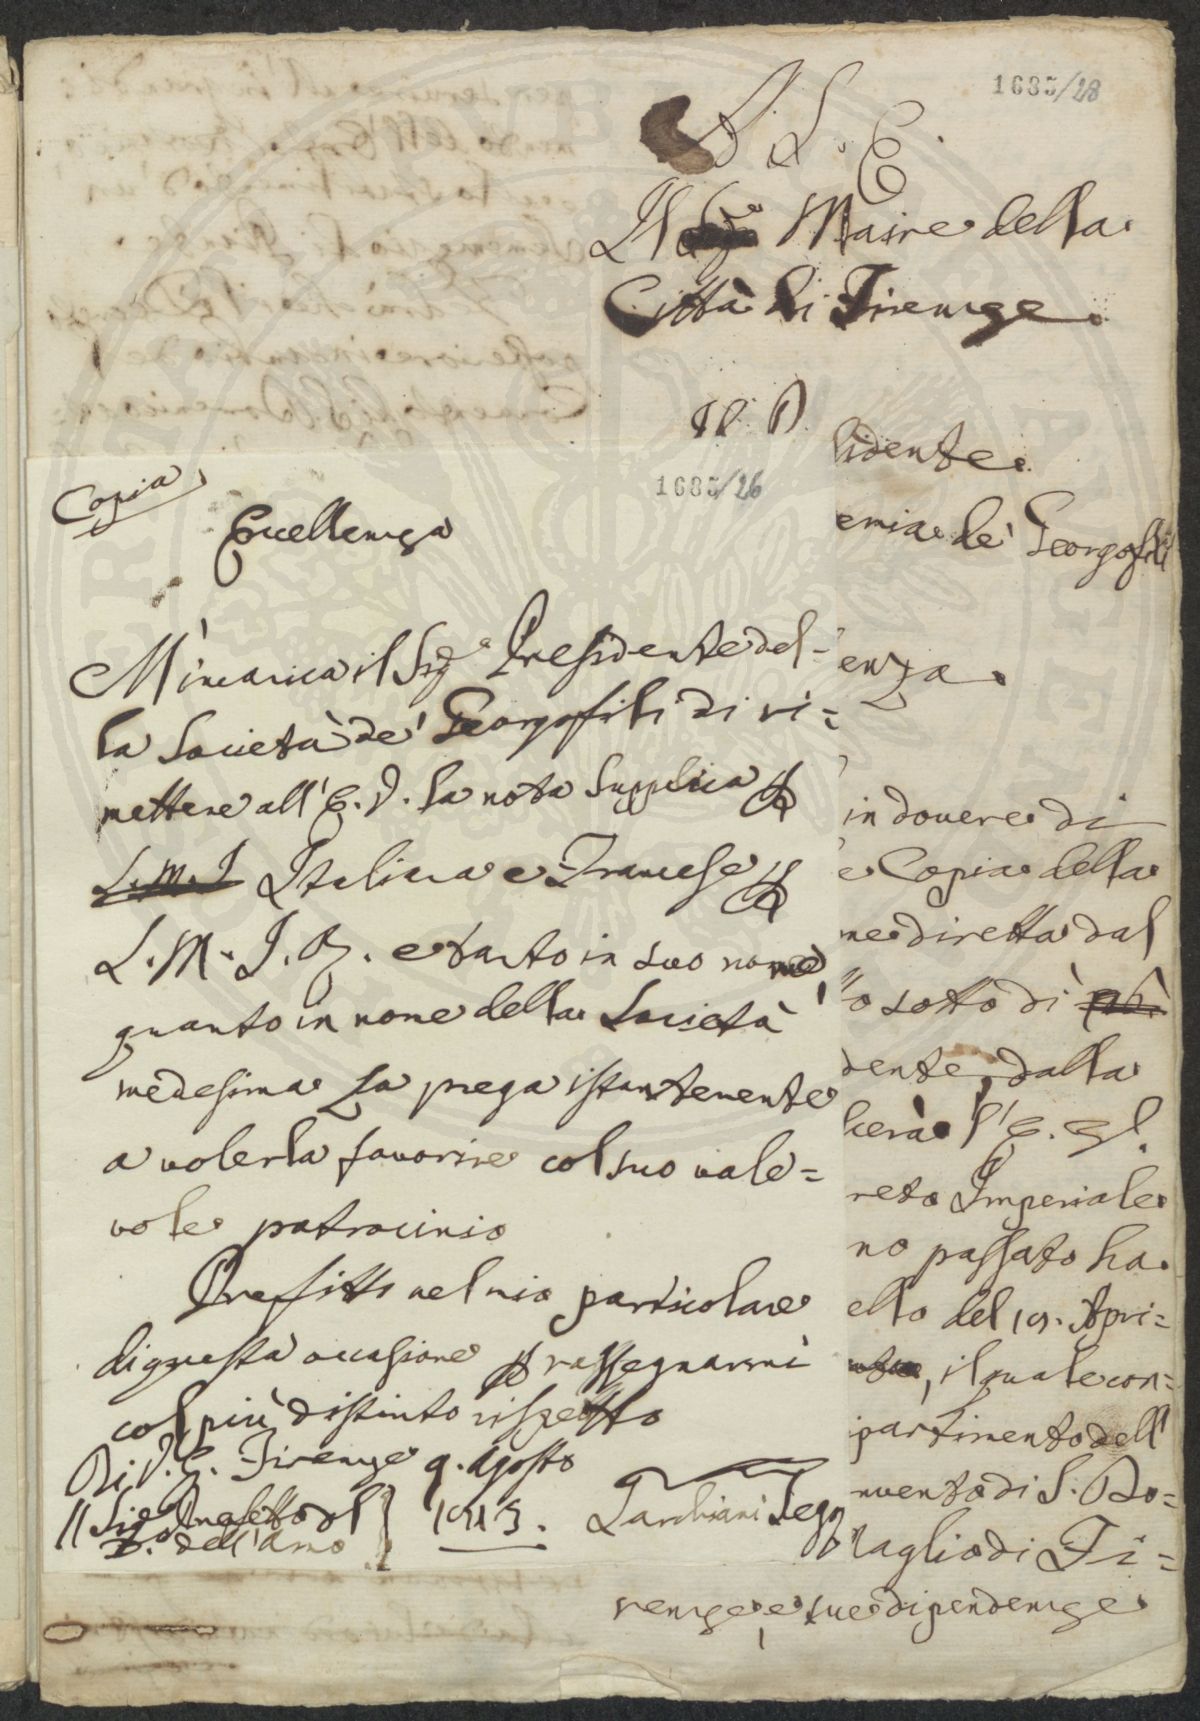 1685/28
A. S. E.
Il Maire della
Città di Firenze.
Il P
sidente
emia de' Georgofili
enza.
in dovere di
e Copia della
ne diretta dal
o sotto dì
dente, dalla
cerà l'E.
reto Imperiale
no passato ha
ello del 19. Apri=
, il quale con=
partimento dell'
nvento di S. Do=
taglio di Fi=
renze, e sue dipendenze
1685/26
Copia
Eccellenza
M'incarica il Sig.e Presidente del=
la Società de' Georgofili di ri=
mettere all'E. V. la nota supplica
S. M. I. Italiana e Francese
S. M. I. R. e tanto in suo nome,
quanto in nome della Società
medesima La prega istantemente
a volerla favorire col suo vale=
vole patrocinio
Profitto nel mio particolare
di questa occasione rassegnarmi
col più distinto rispetto
Di V. E. Firenze 9. Agosto
Il Sig. Prefetto del 1813.
D. dell'Arno
Tarchiani Seg